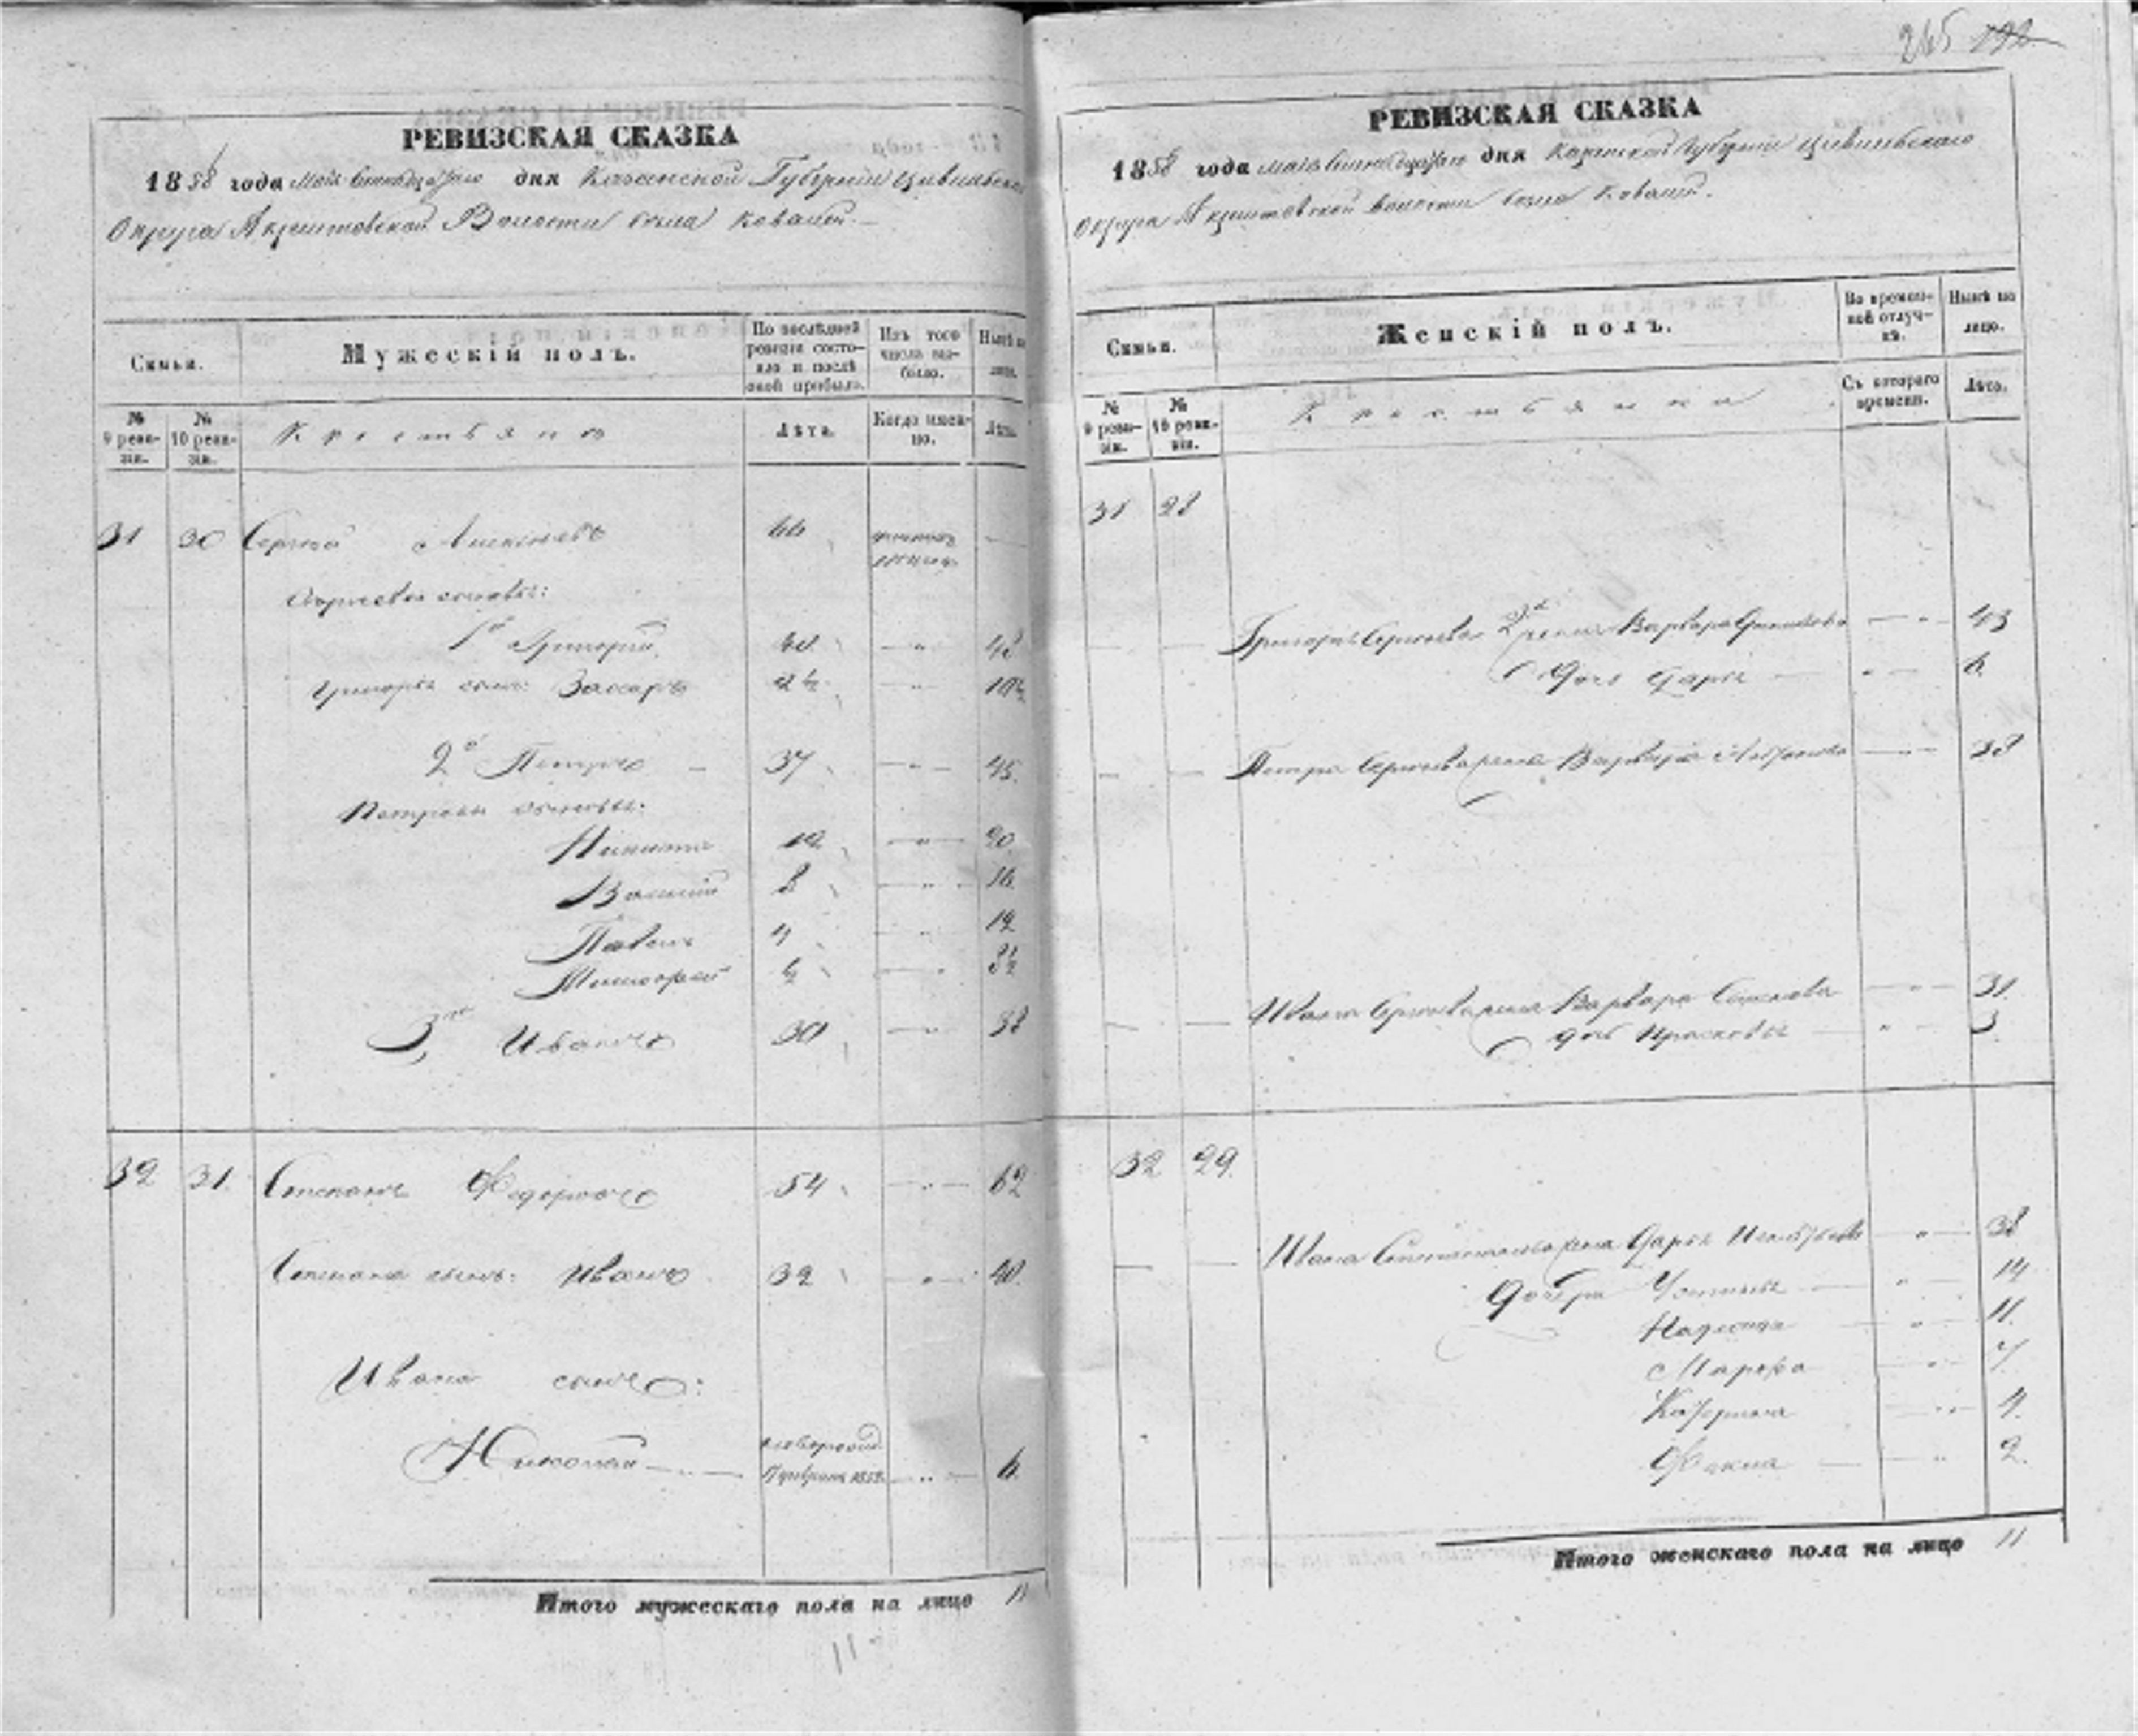 265
РЕВИЗСКАЯ СКАЗКА
1858 года Мая дня Казанской Губернии Цивильскаго
Округа Волости села Ковалей.
Семьи.
Мужескій полъ.
По послѣдней ревизіи состояло и послѣ оной прибыло.
Изъ того числа выбыло.
Нынѣ на лицо.
№ 9 ревизіи.
№ 10 ревизіи.
Крестьяне
Лѣта.
Когда именно.
Лѣта.
31 30 Сергей 66
Сергеевы сыновья:
1й Григорій 40 48
Григорья сынъ Захаръ 2½ 10½
2й Петръ 37 45
Петровы сыновья:
Никита 12 20
Василій 8 16
Павелъ 4 12
Тимофей ½ 8½
3й Иванъ 30 38
32 31 Степанъ Федоровъ 54 62
Степана сынъ: Иванъ 32 40
Ивана сынъ:
Николай 6
Итого мужескаго пола на лицо 11
РЕВИЗСКАЯ СКАЗКА
1858 года мая дня Казанской Губерніи Цивильскаго
Округа волости села Ковалей.
Семьи.
Женскій полъ.
Во временной отлучкѣ.
Нынѣ на лицо.
№ 9 ревизіи.
№ 10 ревизіи.
Крестьянки
Съ котораго времени.
Лѣта.
31 28
Григорья Сергеева 2я жена Варвара 43
Дочь Дарья 6
Петра Сергеева жена Варвара 38
Ивана Сергеева жена Варвара 31
дочь Прасковья 3
32 29
Ивана Степанова жена Дарья 38
Дочери Устинья 14
Надежда 11
Марфа 7
Катерина 4
Фекла 2
Итого женскаго пола на лицо 11